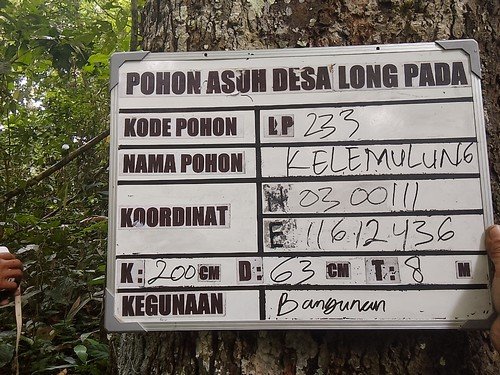 POHON ASUH DESA LONG PADA
KODE POHON LP 233
NAMA POHON KELEMULUNG
KOORDINAT N 03 00111
E 116 12 436
K: 200 CM D: 63 CM T: 8 M
KEGUNAAN Bangunan